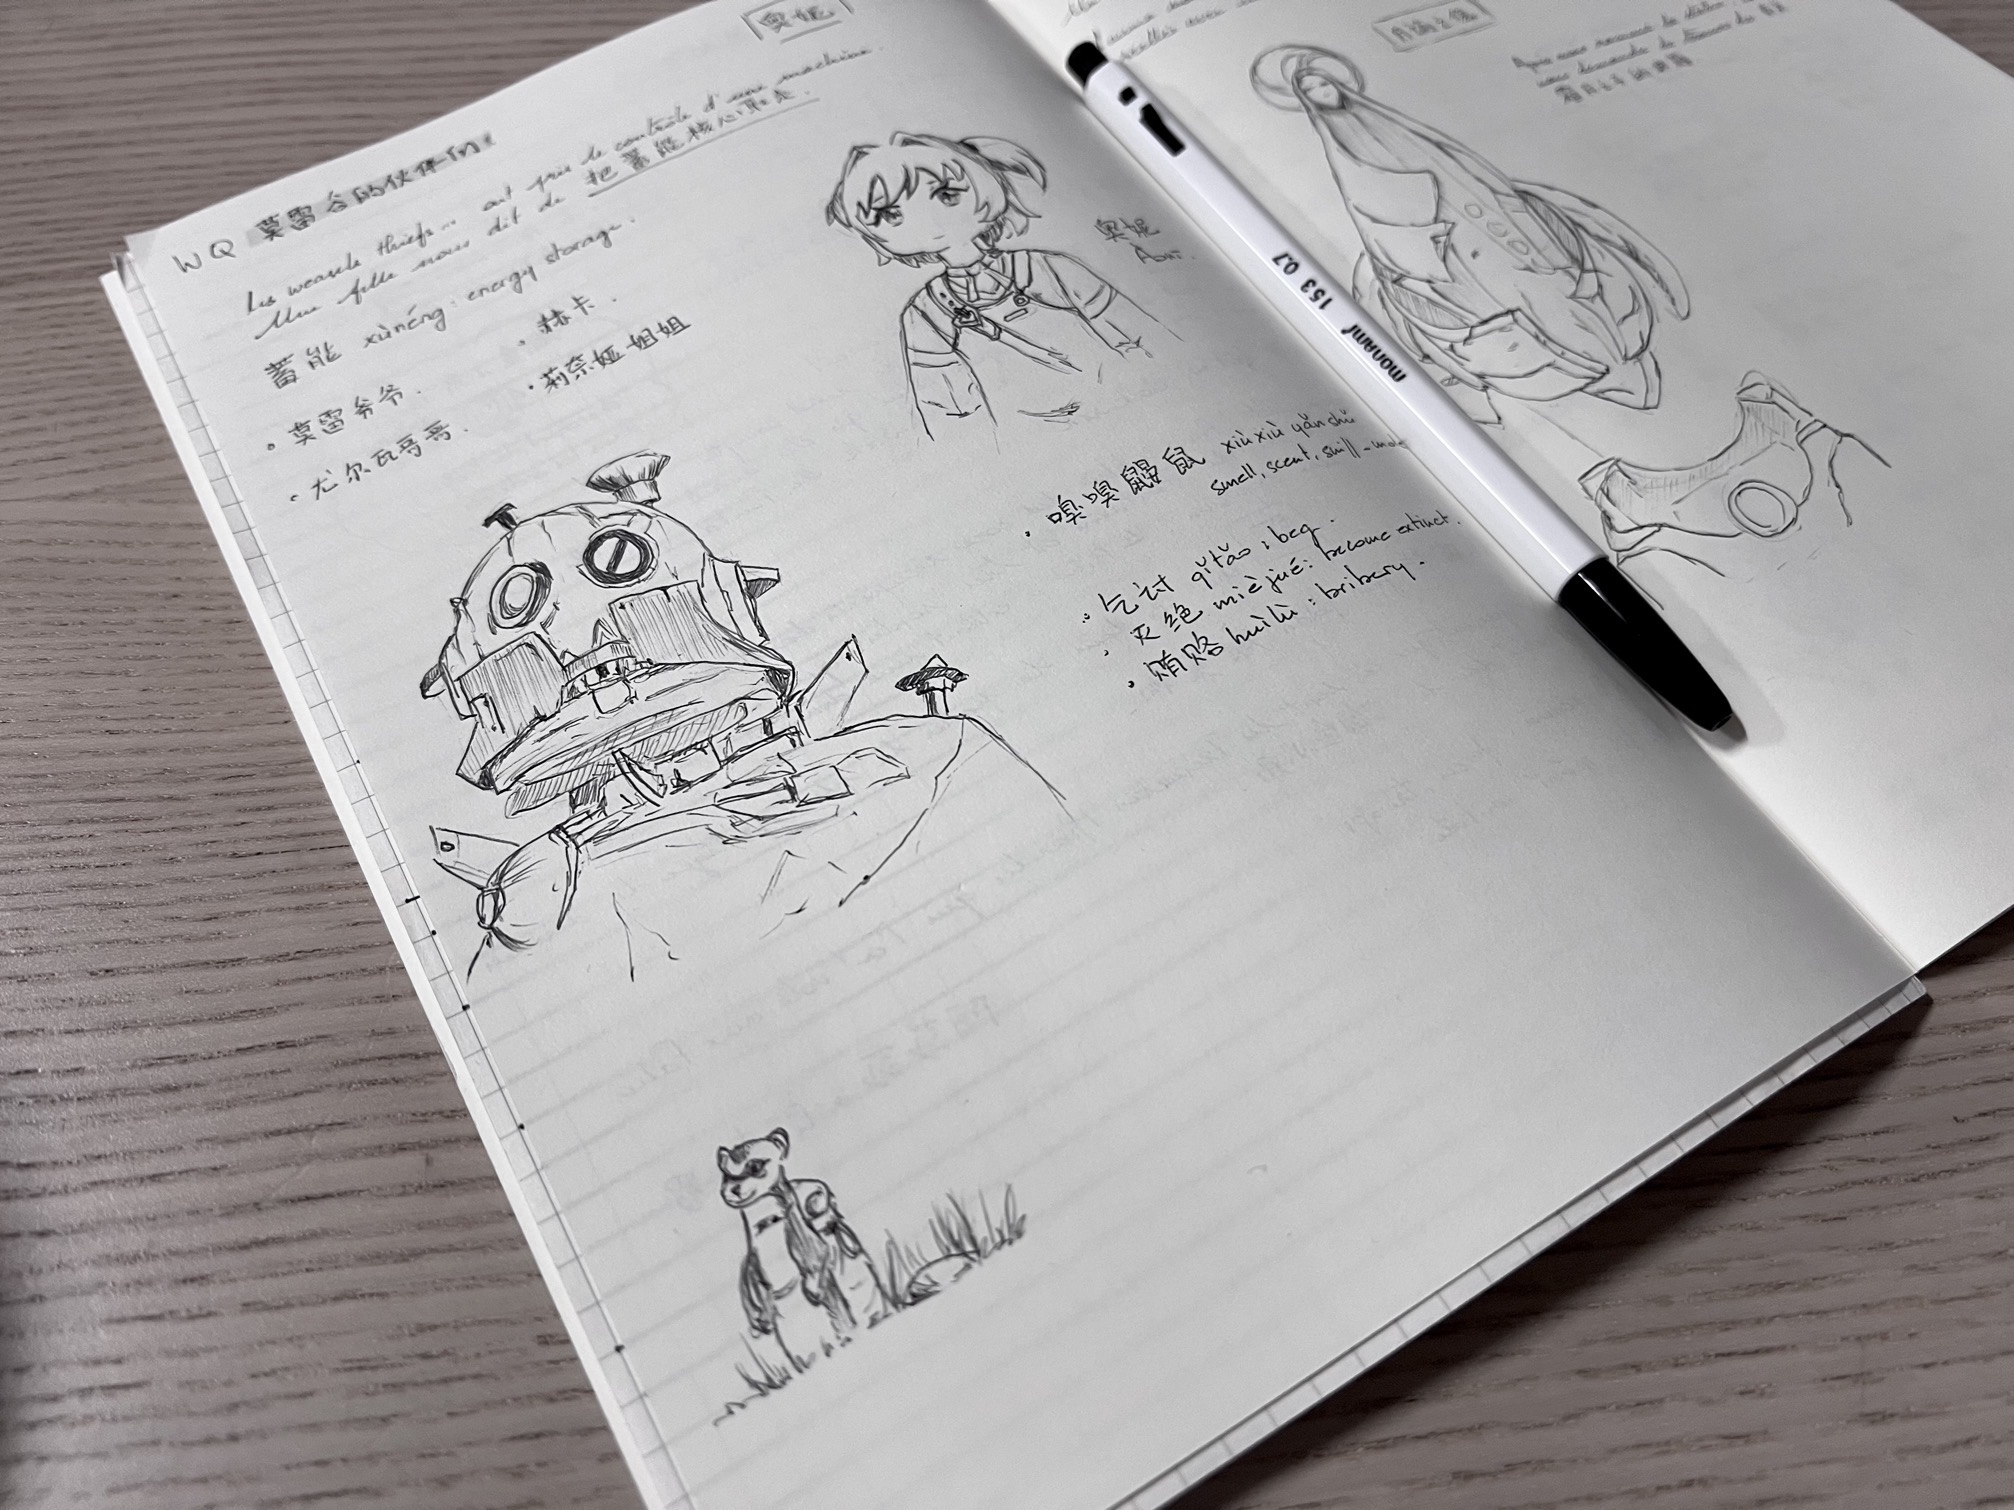 奥妮
WQ 莫雷谷的伙伴们!
Les weasels thiefs... ont pris le contrôle d'une machine.
Une fille nous dit de 把蓄能核心取走.
蓄能 xùnéng: energy storage.
• 莫雷爷爷.
• 赫卡.
• 尤尔瓦哥哥.
• 莉奈娅姐姐
奥妮
Aoni.
• 嗅嗅鼹鼠 xiùxiù yǎnshǔ
smell, scent, smill-mole
• 乞讨 qǐtǎo: beg.
• 灭绝 mièjué: become extinct.
• 贿赂 huìlù: bribery.
monami 153 0.7